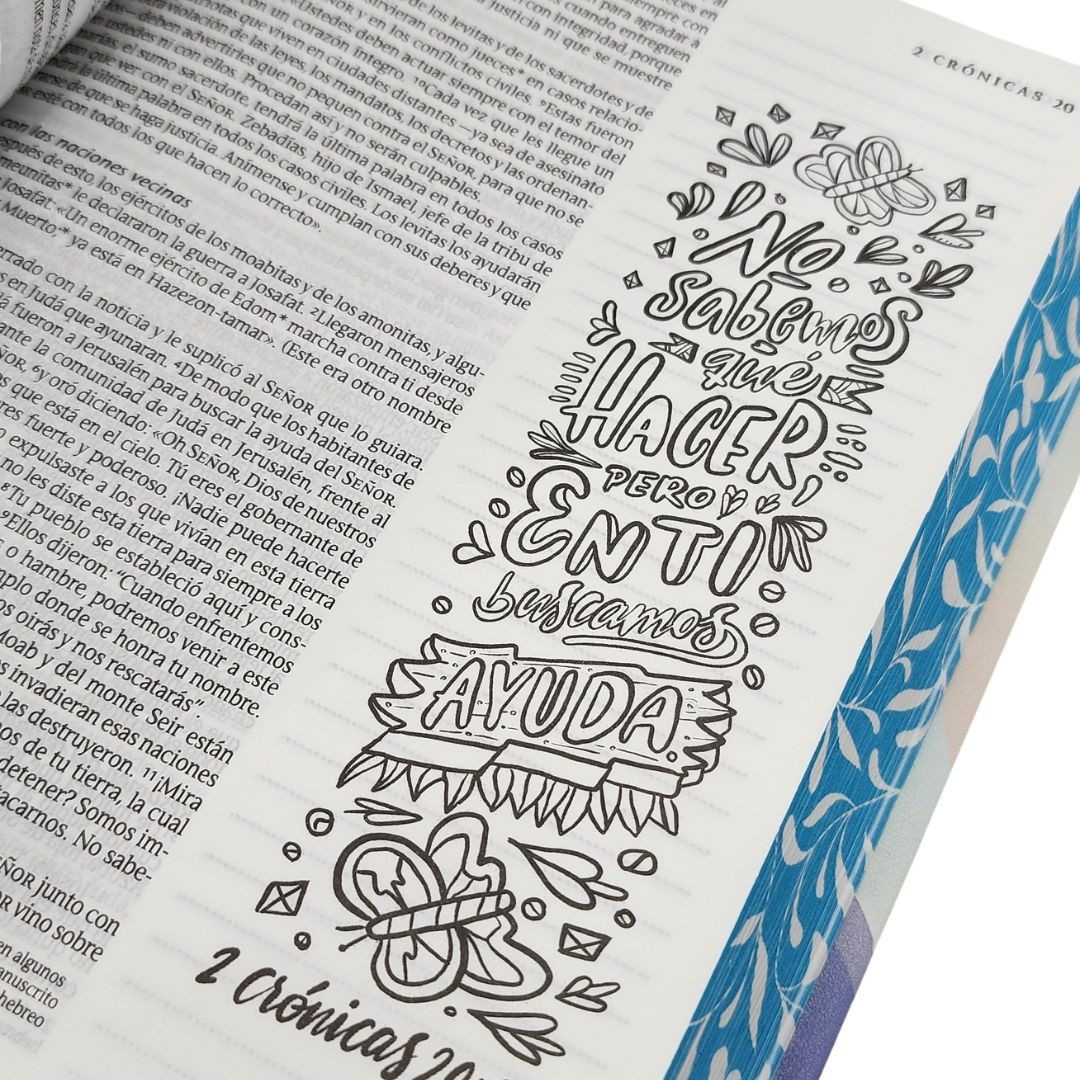 siempre con
para agradar a
cuando entreguen
con integridad, porque
justicia ni que se muestre
de los levitas y de los sacerdotes y de
como jueces* en casos relacio-
y en los conflictos civiles. 9Estas fueron
«Ustedes deben actuar siempre con el temor del
un corazón íntegro. 10Cada vez que les llegue un
que viven en ciudades distantes —ya sea de asesinato
violación de las leyes, los mandatos, los decretos y las ordenan-
deben advertirles que no pequen contra el SEÑOR, para que no se
ustedes ni con ellos. Procedan así y no serán culpables.
el sumo sacerdote, tendrá la última palabra en todos los casos
que ver con el SEÑOR. Zebadías, hijo de Ismael, jefe de la tribu de
la última palabra en todos los casos civiles. Los levitas los ayudarán
de que se haga justicia. Anímense y cumplan con sus deberes y que
esté con todos los que hacen lo correcto».
con las naciones vecinas
después de esto, los ejércitos de los moabitas y de los amonitas, y algu-
meunitas* le declararon la guerra a Josafat. 2Llegaron mensajeros
Josafat: «Un enorme ejército de Edom* marcha contra ti desde
Muerto;* ya está en Hazezon-tamar». (Este era otro nombre
errado con la noticia y le suplicó al SEÑOR que lo guiara.
en Judá que ayunaran. 4De modo que los habitantes de
dá fueron a Jerusalén para buscar la ayuda del SEÑOR
ante la comunidad de Judá en Jerusalén, frente al
ÑOR, 6y oró diciendo: «Oh SEÑOR, Dios de nuestros
os que está en el cielo. Tú eres el gobernante de
res fuerte y poderoso. ¡Nadie puede hacerte
o expulsaste a los que vivían en esta tierra
no les diste esta tierra para siempre a los
8Tu pueblo se estableció aquí y cons-
9Ellos dijeron: “Cuando enfrentemos
o hambre, podremos venir a este
mplo donde se honra tu nombre.
os oirás y nos rescatarás”.
Moab y del monte Seir están
s invadieran esas naciones
las destruyeron. 11¡Mira
os de tu tierra, la cual
detener? Somos im-
tacarnos. No sabe-
EÑOR junto con
OR vino sobre
en algunos
manuscrito
hebreo
2 CRÓNICAS 20
NO
sabemos
qué
HACER,
PERO
EN TI
buscamos
AYUDA.
2 Crónicas 20